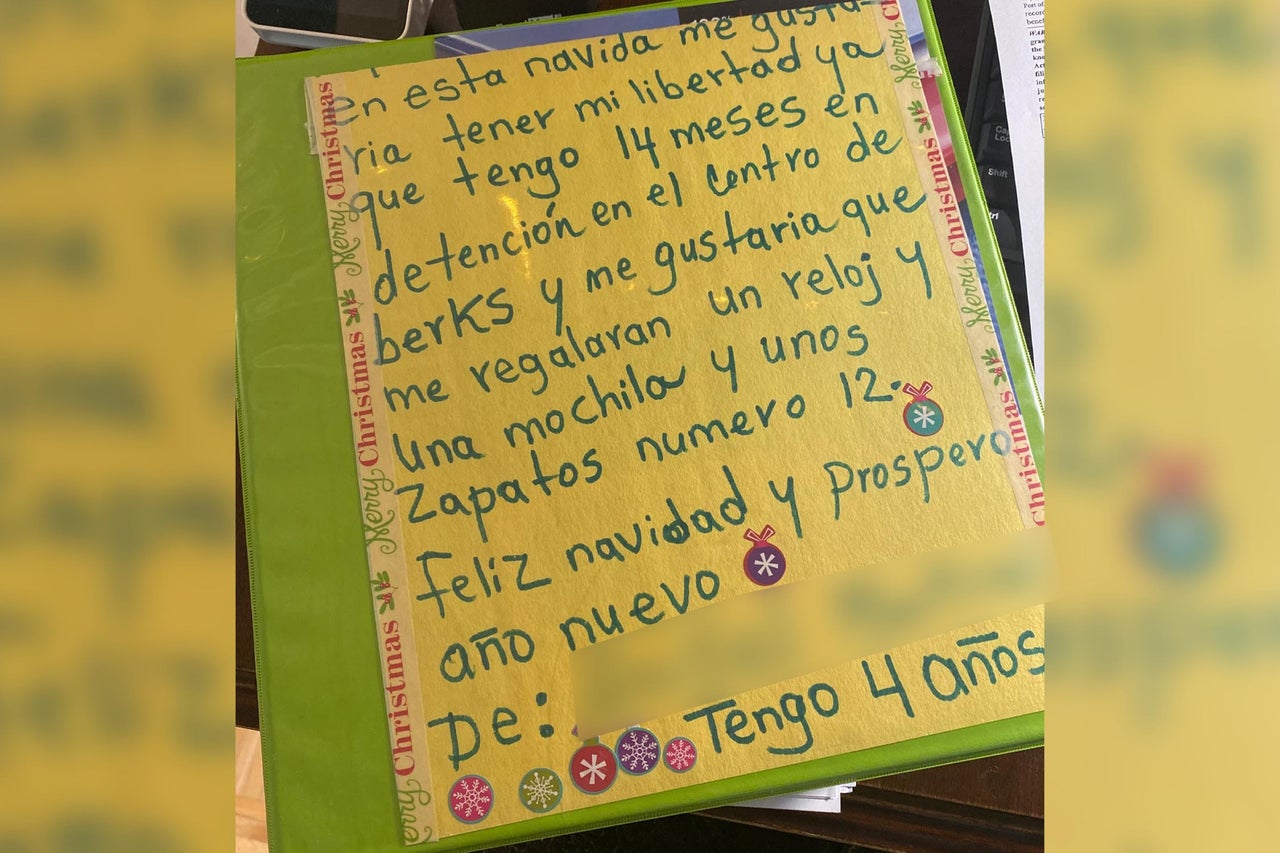 en esta navida me gusta-
ria tener mi libertad ya
que tengo 14 meses en
detención en el centro de
berks y me gustaria que
me regalaran un reloj y
una mochila y unos
zapatos numero 12.
feliz navidad y prospero
año nuevo
De:
Tengo 4 años
Merry Christmas
Merry Christmas
Merry Christmas
Merry
Merry Christmas
Merry Christmas
Caps
Loc
Shift
tri
Port of
record
benef
WAR
gran
the
kno
Act
fili
inf
ju
re
se